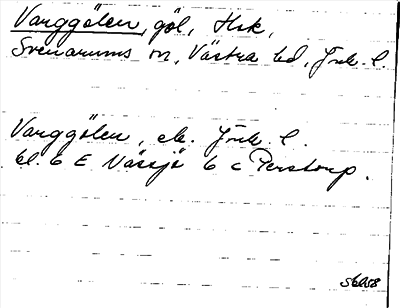 Varggölen, göl, Hsk,
Svenarums sn, Västra hd, Jönk. l.
Varggölen, ek. Jönk. l.
bl. 6 E Nässjö 6 c Perstorp.